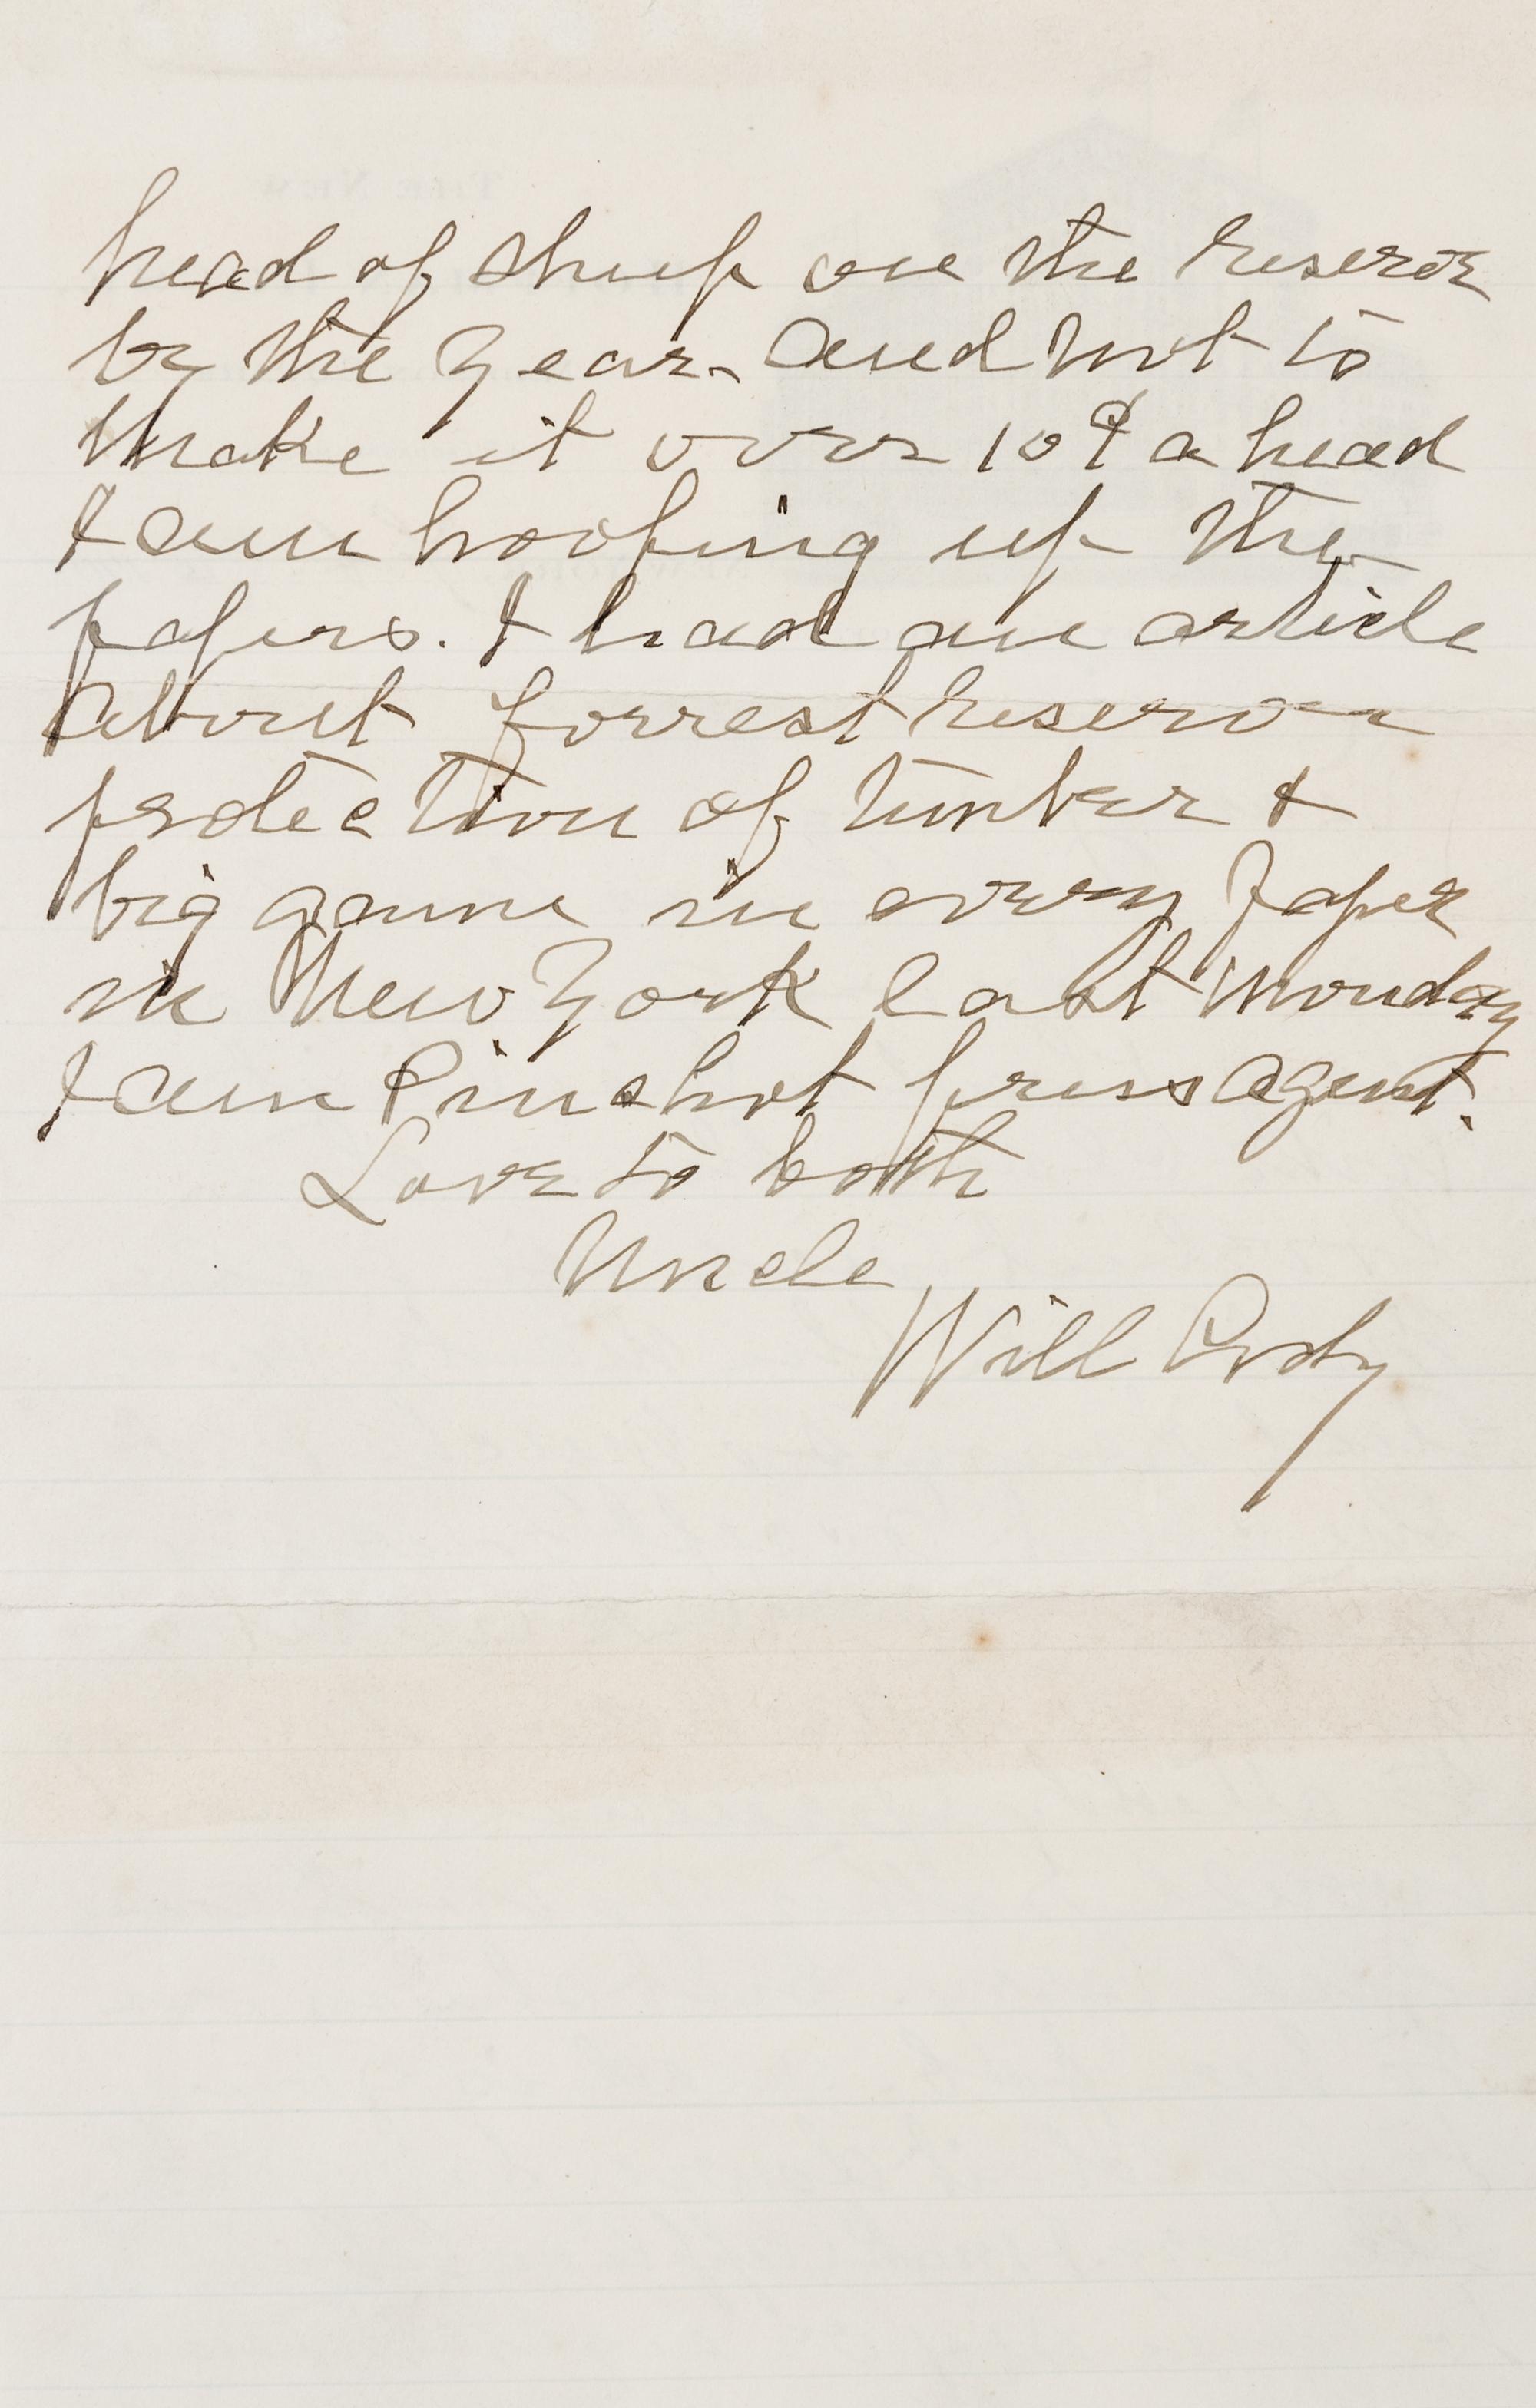 head of sheep on the reserve
by the year. and not to
make it over 10¢ a head
I am hooping up the
papers. I had an article
about Forrest reserve
protection of timber &
big game in every paper
in New York last Monday
I am Pinchot press agent.
Love to both
Uncle
Will Cody